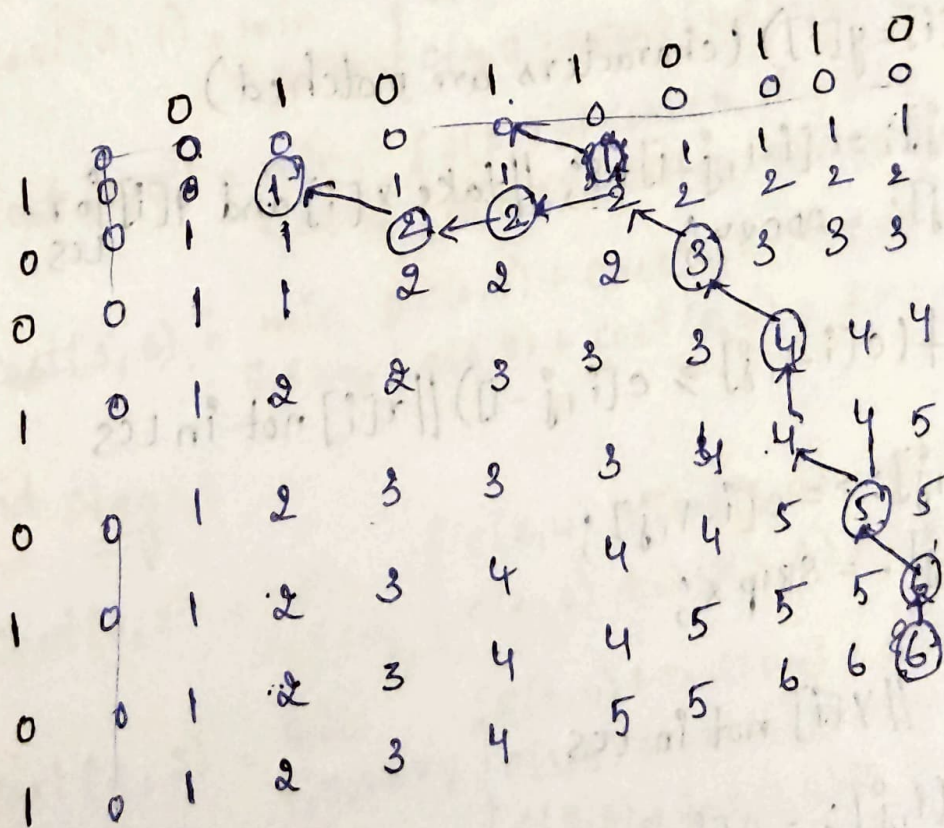 0 1 0 1 1 0 1 1 0
0 0 0 0 0 0 0 0 0 0
1 0 0 1 1 1 1 1 1 1 1
0 0 1 1 2 2 2 2 2 2 2
0 0 1 1 2 2 2 3 3 3 3
1 0 1 2 2 3 3 3 4 4 4
0 0 1 2 3 3 3 4 4 4 5
1 0 1 2 3 4 4 4 5 5 5
0 0 1 2 3 4 4 5 5 5 6
1 0 1 2 3 4 5 5 6 6 6